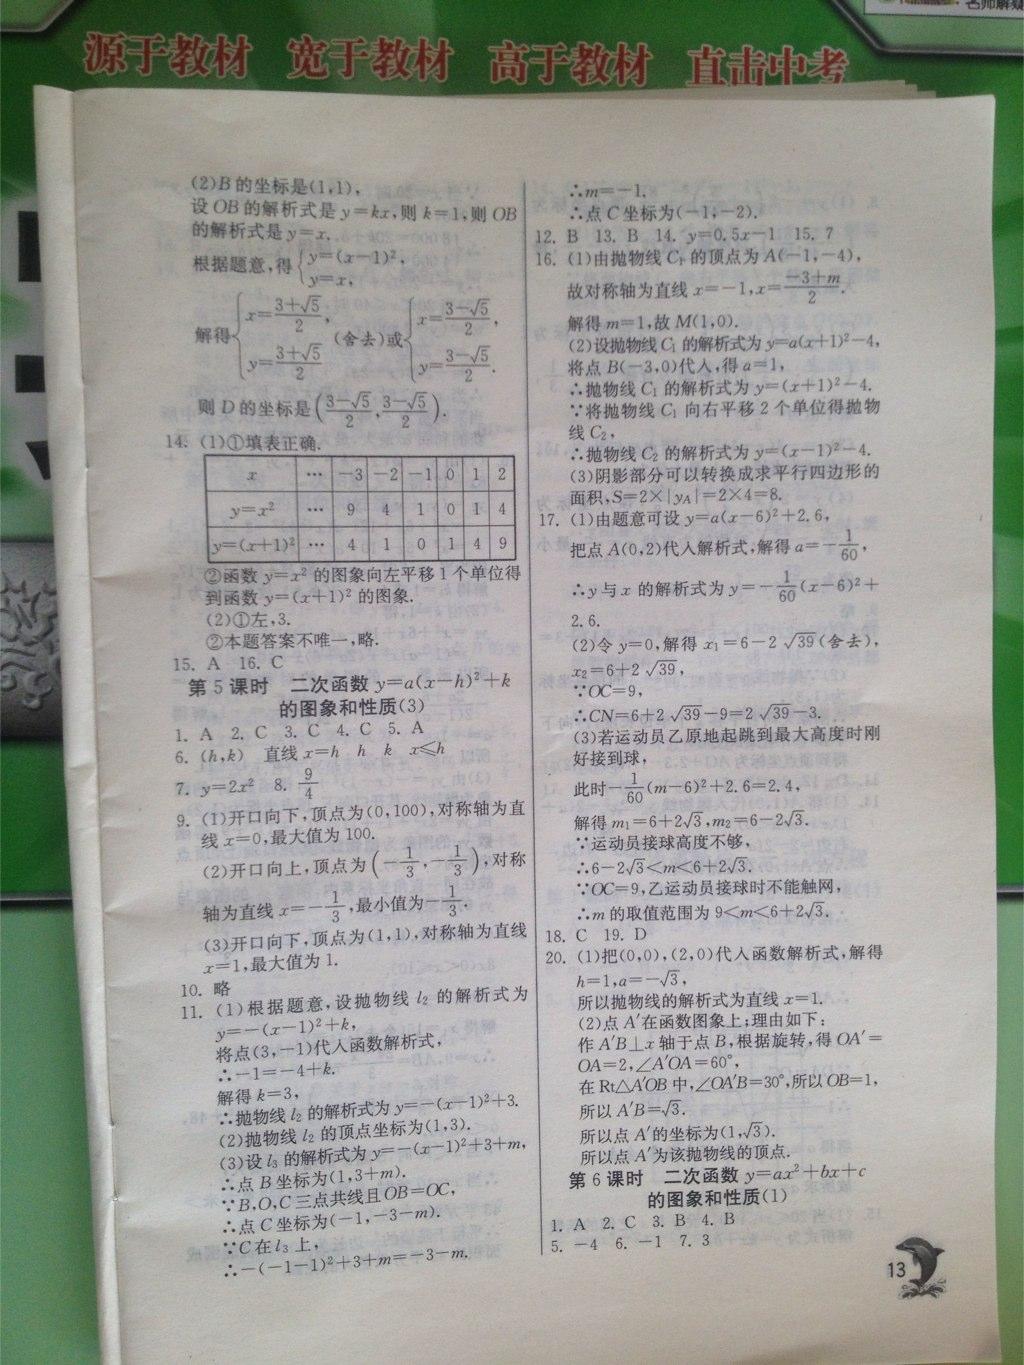 名师解疑
源于教材 宽于教材 高于教材 直击中考
(2)B的坐标是(1,1),
设OB的解析式是y=kx,则k=1,则OB
的解析式是y=x.
根据题意,得{y=(x-1)²,
y=x,
解得{x=(3+√5)/2, y=(3+√5)/2 (舍去)或{x=(3-√5)/2, y=(3-√5)/2.
则D的坐标是((3-√5)/2,(3-√5)/2).
14. (1)①填表正确.
x … -3 -2 -1 0 1 2
y=x² … 9 4 1 0 1 4
y=(x+1)² … 4 1 0 1 4 9
②函数y=x²的图象向左平移1个单位得
到函数y=(x+1)²的图象.
(2)①左,3.
②本题答案不唯一,略.
15. A 16. C
第5课时 二次函数y=a(x-h)²+k
的图象和性质(3)
1. A 2. C 3. C 4. C 5. A
6. (h,k) 直线x=h h k x≤h
7. y=2x² 8. 9/4
9. (1)开口向下,顶点为(0,100),对称轴为直
线x=0,最大值为100.
(2)开口向上,顶点为(-1/3,-1/3),对称
轴为直线x=-1/3,最小值为-1/3.
(3)开口向下,顶点为(1,1),对称轴为直线
x=1,最大值为1.
10. 略
11. (1)根据题意,设抛物线l₂的解析式为
y=-(x-1)²+k,
将点(3,-1)代入函数解析式,
∴-1=-4+k.
解得k=3,
∴抛物线l₂的解析式为y=-(x-1)²+3.
(2)抛物线l₂的顶点坐标为(1,3).
(3)设l₃的解析式为y=-(x-1)²+3+m,
∴点B坐标为(1,3+m).
∵B,O,C三点共线且OB=OC,
∴点C坐标为(-1,-3-m).
∵C在l₃上,
∴-(-1-1)²+3+m=-3-m.
∴m=-1.
∴点C坐标为(-1,-2).
12. B 13. B 14. y=0.5x-1 15. 7
16. (1)由抛物线C₁的顶点为A(-1,-4),
故对称轴为直线x=-1,x=(-3+m)/2.
解得m=1,故M(1,0).
(2)设抛物线C₁的解析式为y=a(x+1)²-4,
将点B(-3,0)代入,得a=1,
∴抛物线C₁的解析式为y=(x+1)²-4.
∵将抛物线C₁向右平移2个单位得抛物
线C₂,
∴抛物线C₂的解析式为y=(x-1)²-4.
(3)阴影部分可以转换成求平行四边形的
面积,S=2×|yA|=2×4=8.
17. (1)由题意可设y=a(x-6)²+2.6,
把点A(0,2)代入解析式,解得a=-1/60,
∴y与x的解析式为y=-1/60(x-6)²+
2.6.
(2)令y=0,解得x₁=6-2√39(舍去),
x₂=6+2√39,
∵OC=9,
∴CN=6+2√39-9=2√39-3.
(3)若运动员乙原地起跳到最大高度时刚
好接到球,
此时-1/60(m-6)²+2.6=2.4,
解得m₁=6+2√3,m₂=6-2√3.
∵运动员接球高度不够,
∴6-2√3<m<6+2√3.
∵OC=9,乙运动员接球时不能触网,
∴m的取值范围为9<m<6+2√3.
18. C 19. D
20. (1)把(0,0),(2,0)代入函数解析式,解得
h=1,a=-√3,
所以抛物线的解析式为直线x=1.
(2)点A′在函数图象上;理由如下:
作A′B⊥x轴于点B,根据旋转,得OA′=
OA=2,∠A′OA=60°,
在Rt△A′OB中,∠OA′B=30°,所以OB=1,
所以A′B=√3.
所以点A′的坐标为(1,√3).
所以点A′为该抛物线的顶点.
第6课时 二次函数y=ax²+bx+c
的图象和性质(1)
1. A 2. C 3. B 4. B
5. -4 6. -1 7. 3
13